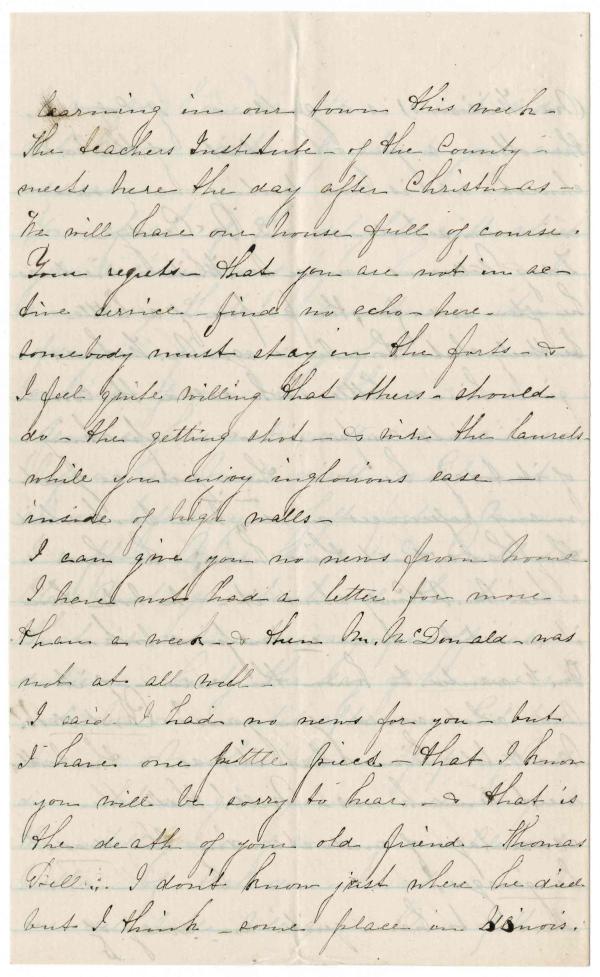 learning in our town this week -
The teachers Institute - of the County -
meets here the day after Christmas -
We will have our house full of course.
Your regrets - that you are not in ac-
tive service - find no echo - here -
somebody must stay in the forts - &
I feel quite willing that others - should
do - the getting shot - & win the laurels -
while you enjoy inglorious ease -
inside of high walls -
I can give you no news from home
I have not had a letter for more
than a week - & then Mr. McDonald - was
not at all well -
I said I had no news for you - but
I have one little piece - that I know
you will be sorry to hear - & that is
the death of your old friend - Thomas
Bell. I don't know just where he died
but I think - some place in Illinois.